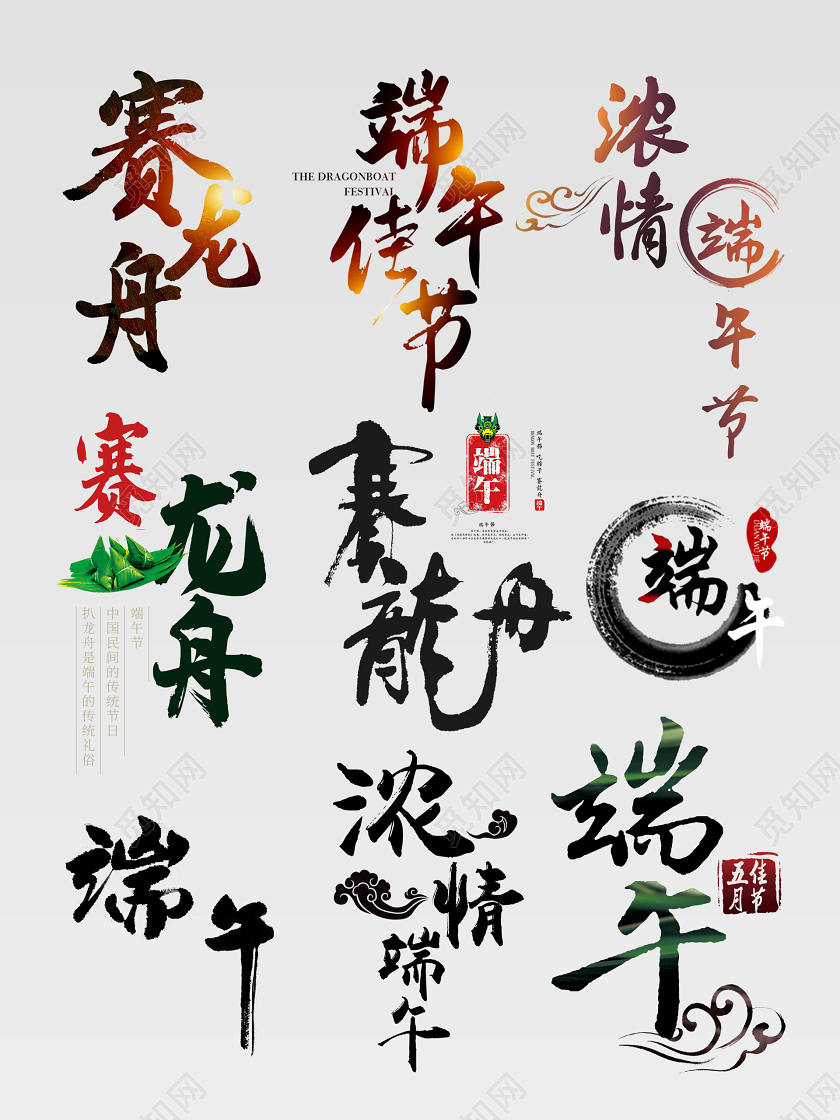 赛龙舟
端午佳节
THE DRAGONBOAT
FESTIVAL
浓情
端午节
赛龙舟
端午节
中国民间的传统节日
扒龙舟是端午的传统礼俗
赛龍舟
端午
端午节 吃粽子 赛龙舟
端午
端午节
端午
端午节
端午
浓情端午
端午
五月佳节
觅知网